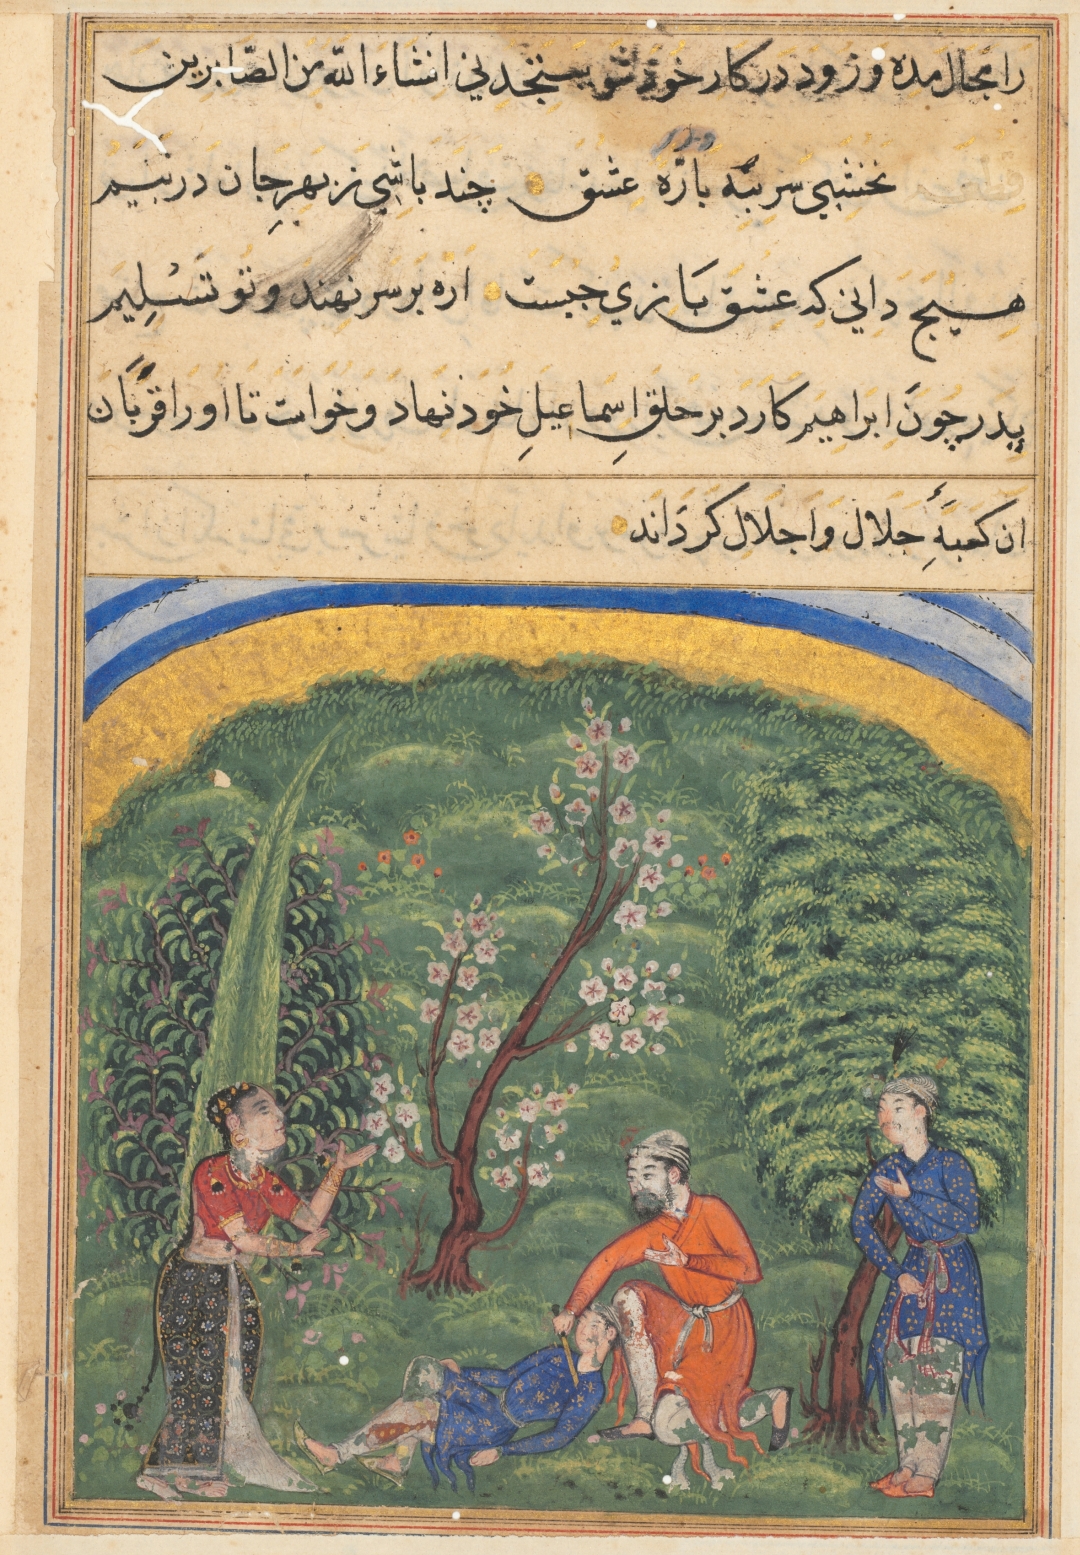 را مجال مده و زود در کار خود شو ستجدنی انشاء الله من الصابرین
نخشبی سر بنه باره عشق چند باشی ز بهر جان در بیم
هیچ دانی که عشق بازی چیست اره بر سر نهند و تو تسلیم
پدر چون ابراهیم کارد بر حلق اسماعیل خود نهاد و خواست تا او را قربان
ان کعبهٔ جلال و اجلال کرداند